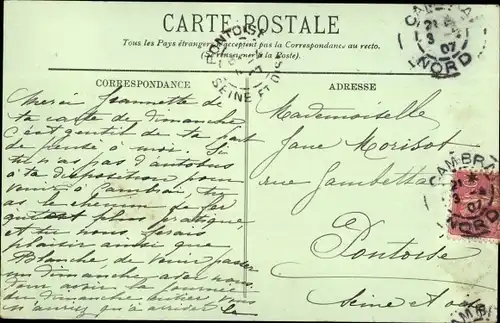 CARTE POSTALE
Tous les Pays étrangers n'acceptent pas la Correspondance au recto.
(Se renseigner à la Poste).
CORRESPONDANCE
ADRESSE
Merci Jeannette de
ta carte de dimanche
c'est gentil de ta part
de penser à moi. Si
tu n'as pas d'autobus
à ta disposition pour
venir à Cambrai tu
as le chemin de fer
plus pratique
Et tu nous ferais
plaisir ainsi que
Blanche de venir passer
un dimanche avec nous
pour la journée
du dimanche
n'auriez qu'à arriver le
Mademoiselle
Jane Morisot
rue Gambetta
Pontoise
Seine et Oise
PONTOISE
SEINE ET OISE
CAMBRAI
21
3
07
NORD
CAMBRAI
21
3
07
NORD